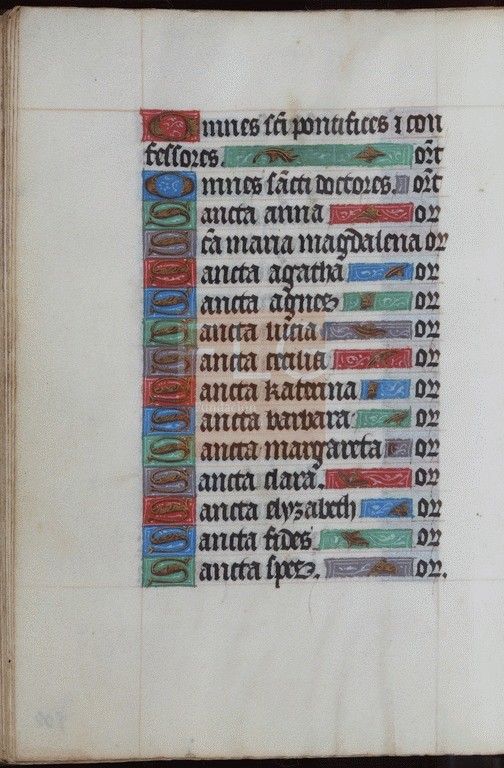 Omnes sci pontifices ⁊ con
fessores. ort
Omnes sancti doctores. ort
Sancta anna or
Sca maria magdalena or
Sancta agatha or
Sancta agnes or
Sancta lucia or
Sancta cecilia or
Sancta katerina or
Sancta barbara or
Sancta margareta or
Sancta clara. or
Sancta elyzabeth or
Sancta fides or
Sancta spes. or.